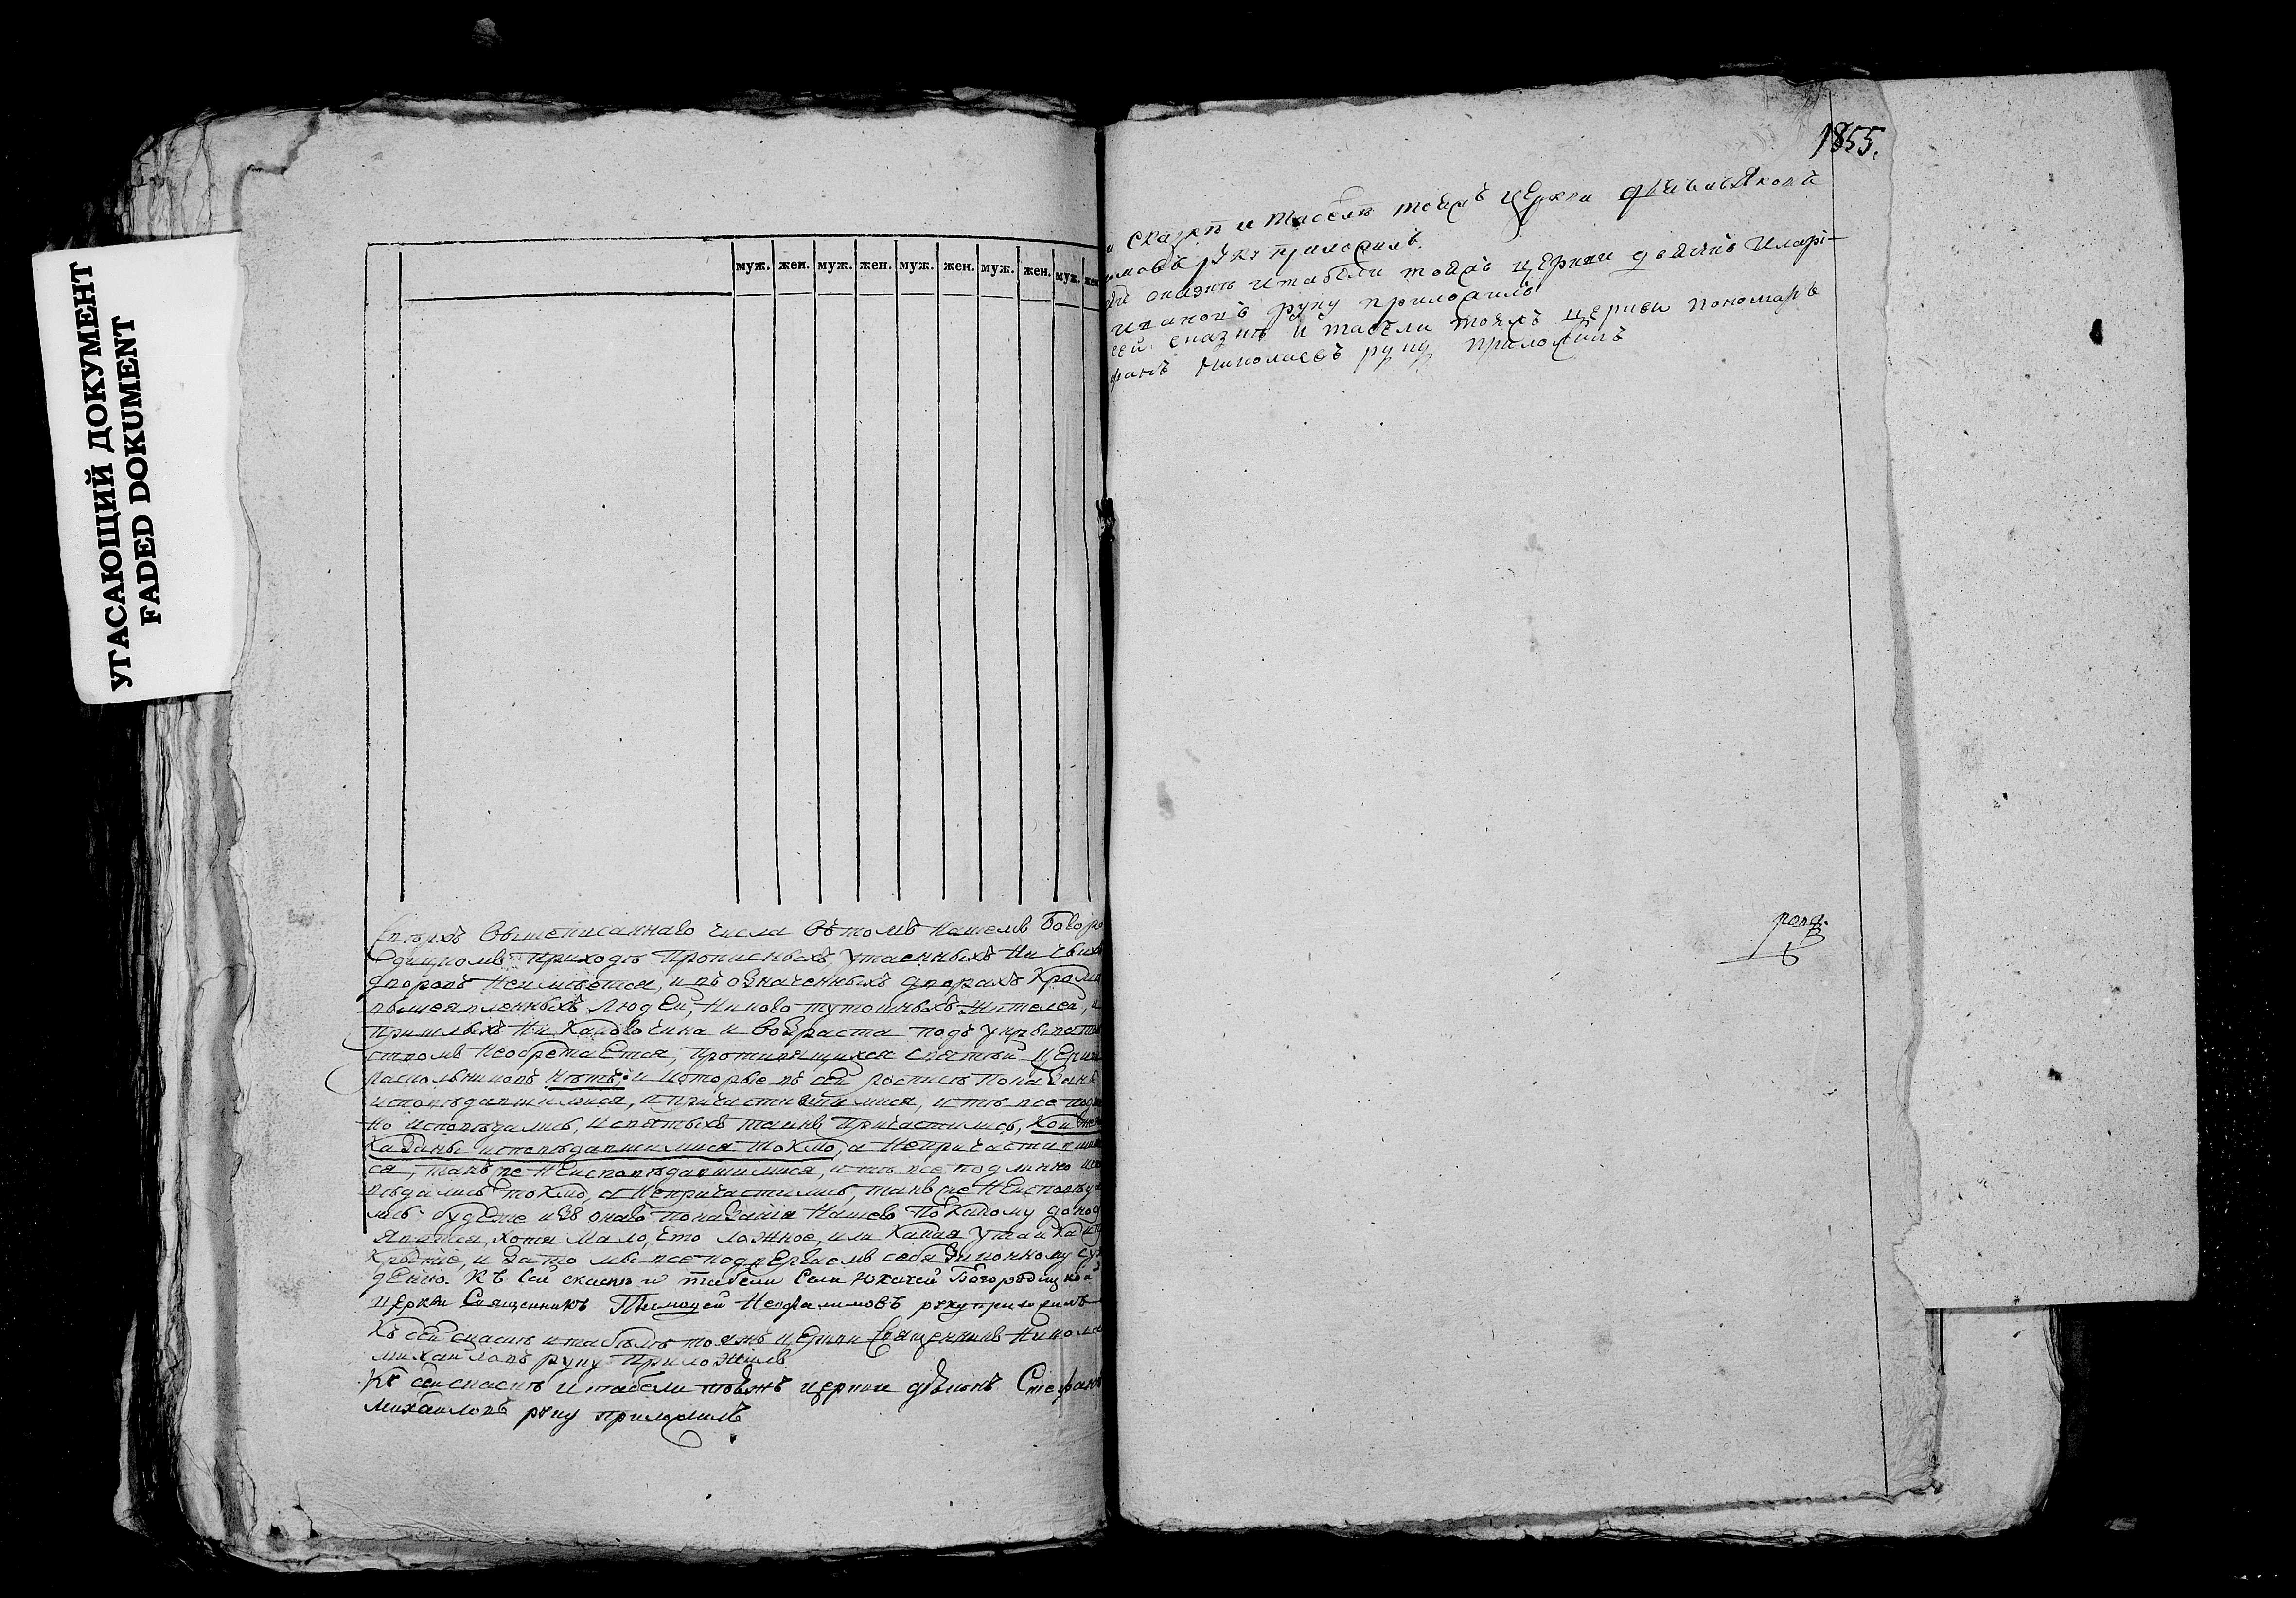 УГАСАЮЩИЙ ДОКУМЕНТ
FADED DOKUMENT
муж. жен. муж. жен. муж. жен. муж. жен. муж. жен
Сверхъ вышеписаннаго числа вътомъ нашемъ Богоро
дицкомъ приходѣ прописныхъ, утаенныхъ ни чьихъ
дворовъ неимѣется, и въ означенныхъ дворахъ кроме
вышеявленныхъ людей, никого тутошныхъ жителей, и
пришлыхъ ни какого чина и возраста подъ укрыва
ствомъ необретается, противящихся святѣй церкви
раскольниковъ нѣтъ; и которые въ сей росписѣ показаны
исповѣдавшимися, и причастившимися, и тѣ все подли
но исповѣдались, и святыхъ таинъ причастились, кои же
казаны исповѣдавшимися токмо, а непричастивши
ся, такъ же неисповѣдавшимися, и тѣ все подлинно испо
вѣдались токмо, а непричастились, такъ же неисповѣда
лись будеже изъ онаго показанія нашего по какому
явится, хотя мало, что ложное, или какая утайка и
крытіе, и зато мы все подвергаемъ себя законному су
денію. Къ сей скаскѣ и табели села Богородицкой
церкви Священникъ Тимофей руку приложилъ
Къ сей скаскѣ и табелѣ тояжъ церкви Священникъ Никола
Михайловъ руку приложилъ
Къ сей скаскѣ и табели тоежъ церкви дьяконъ Стефанъ
Михайловъ руку приложилъ
1855.
скаскѣ и табелѣ тоежъ церкви дьячекъ Яковъ
руку приложилъ.
скаскѣ и табели тояжъ церкви дьячекъ Илари-
Ивановъ руку приложилъ
сей скаскѣ и табели тояжъ церкви пономарь
Николаевъ руку приложилъ